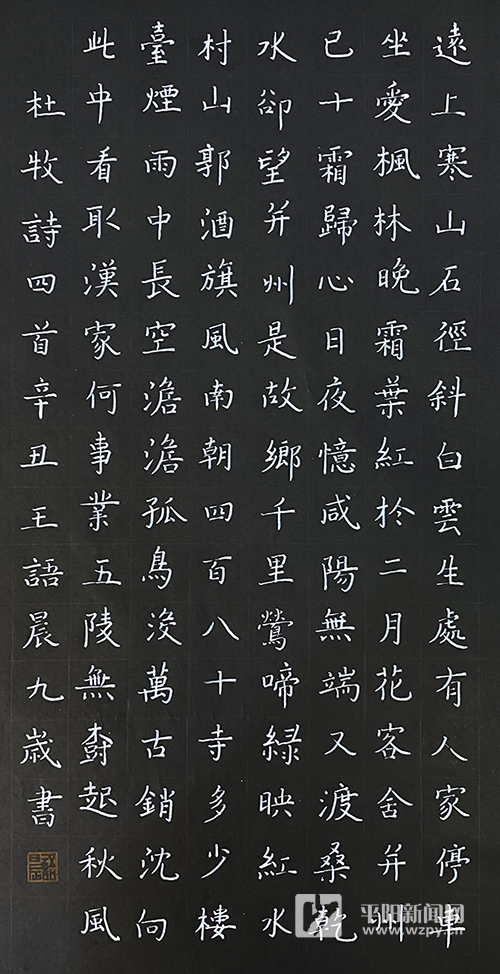 遠上寒山石徑斜白雲生處有人家停車
坐愛楓林晚霜葉紅於二月花客舍并州
已十霜歸心日夜憶咸陽無端又渡桑乾
水卻望并州是故鄉千里鶯啼緑映紅水
村山郭酒旗風南朝四百八十寺多少樓
臺煙雨中長空澹澹孤鳥沒萬古銷沈向
此中看取漢家何事業五陵無樹起秋風
杜牧詩四首辛丑王語晨九歲書
平阳新闻网
www.wzpy.cn